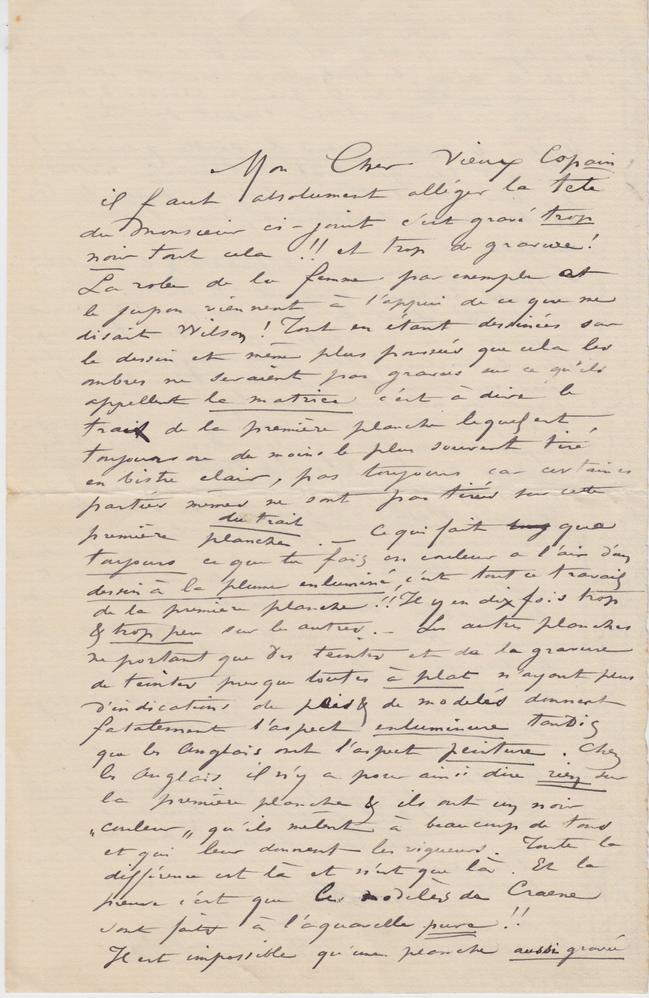 Mon Cher Vieux Copain
il faut absolument alléger la tete
du Monsieur ci-joint c'est gravé trop
noir tout cela !! et trop de gravure !
La robe de la femme par exemple et
le jupon viennent à l'appui de ce que me
disait Wilson ! Tout en étant dessinées sur
le dessin et même plus poussés que cela les
ombres ne seraient pas gravés sur ce qu'ils
appellent la matrice c'est à dire le
trait de la première planche lequel est
toujours ou du moins le plus souvent tiré
en bistre clair, pas toujours car certaines
parties mêmes ne sont pas tirées sur cette
première planche du trait. — Ce qui fait que
toujours ce que tu fais en couleur a l'air d'un
dessin à la plume enluminé, c'est tout ce travail
de la première planche !! Il y en dix fois trop
& trop peu sur les autres. — Les autres planches
ne portant que des teintes et de la gravure
de teintes presque toutes à plat n'ayant plus
d'indications de plis & de modelés donnent
fatalement l'aspect enluminure tandis
que les Anglais ont l'aspect peinture. Chez
les Anglais il n'y a pour ainsi dire rien sur
la première planche & ils ont un noir
„couleur„ qu'ils mêlent à beaucoup de tons
et qui leur donnent les vigueurs. Toute la
différence est là et n'est que là. Et la
preuve c'est que les modèles de Crane
sont faits à l'aquarelle pure !!
Il est impossible qu'une planche aussi gravée